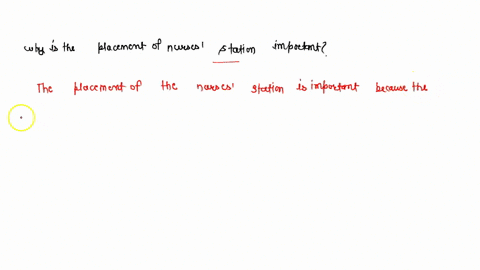 why is the placement of nurses' station important?
The placement of the nurses' station is important because the